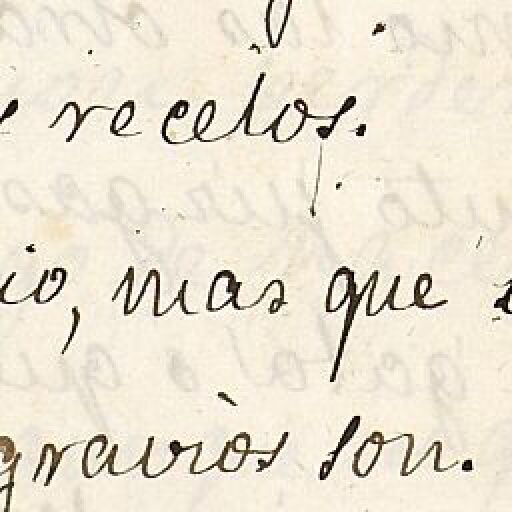 recelos.
io, mas que
graviòs son.